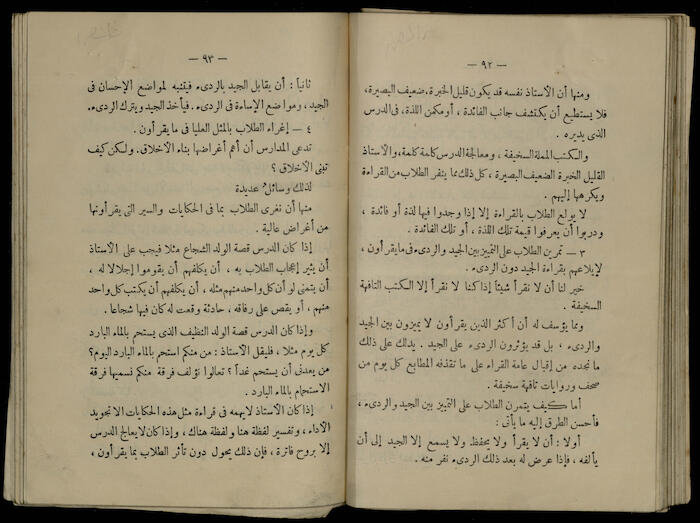 — ٩٢ —
ومنها أن الأستاذ نفسه قد يكون قليل الخبرة، ضعيف البصيرة،
فلا يستطيع أن يكتشف جانب الفائدة، أو مكمن اللذة، في الدرس
الذى يديره.
والكتب المملة السخيفة، ومعالجة الدرس كلمة كلمة، والأستاذ
القليل الخبرة الضعيف البصيرة، كل ذلك مما ينفر الطلاب من القراءة
ويكرهها إليهم.
لا يولع الطلاب بالقراءة إلا إذا وجدوا فيها لذة أو فائدة،
ودربوا أن يعرفوا قيمة تلك اللذة، أو تلك الفائدة.
٣ — تمرين الطلاب على التمييز بين الجيد والردىء فى ما يقرأون،
لإيلاعهم بقراءة الجيد دون الردىء.
خير لنا أن لا نقرأ شيئاً إذا كنا لا نقرأ إلا الكتب التافهة
السخيفة.
ومما يؤسف له أن أكثر الذين يقرأون لا يميزون بين الجيد
والردىء، بل قد يؤثرون الردىء على الجيد. يدلك على ذلك
ما تجده من إقبال عامة القراء على ما تقذفه المطابع كل يوم من
صحف وروايات تافهة سخيفة.
أما كيف يتمرن الطلاب على التمييز بين الجيد والردىء،
فأحسن الطرق إليه ما يأتى:
أولا: أن لا يقرأ ولا يحفظ ولا يسمع إلا الجيد إلى أن
يألفه، فإذا عرض له بعد ذلك الردىء نفر منه.
— ٩٣ —
ثانياً: أن يقابل الجيد بالردىء فيتنبه لمواضع الإحسان فى
الجيد، ومواضع الإساءة فى الردىء. فيأخذ الجيد ويترك الردىء.
٤ — إغراء الطلاب بالمثل العليا فى ما يقرأون.
تدعى المدارس أن أهم أغراضها بناء الأخلاق. ولكن كيف
تبنى الأخلاق؟
لذلك وسائل عديدة
منها أن نغرى الطلاب بما فى الحكايات والسير التى يقرأونها
من أغراض عالية.
إذا كان الدرس قصة الولد الشجاع مثلا فيجب على الأستاذ
أن يثير إعجاب الطلاب به، أن يكلفهم أن يقوموا إجلالا له،
أن يتمنى لو أن كل واحد منهم مثله، أن يكلفهم أن يكتب كل واحد
منهم، أو يقص على رفاقه، حادثة وقعت له كان فيها شجاعا.
وإذا كان الدرس قصة الولد النظيف الذى يستحم بالماء البارد
كل يوم مثلا، فليقل الأستاذ: من منكم استحم بالماء البارد اليوم؟
من يعدنى أن يستحم غداً؟ تعالوا نؤلف فرقة منكم نسميها فرقة
الاستحمام بالماء البارد.
إذا كان الأستاذ لا يهمه فى قراءة مثل هذه الحكايات إلا تجويد
الأداء، وتفسير لفظة هنا ولفظة هناك، وإذا كان لا يعالج الدرس
إلا بروح فاترة، فإن ذلك يحول دون تأثر الطلاب بما يقرأون،